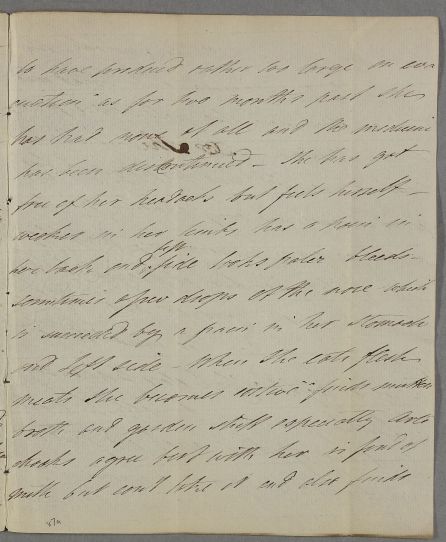 to have produced rather too large an eva
cuation as for two months past she
has had none at all and the medicine
has been discontinued - She has got
free of her headachs but feels herself
weaker in her limbs has a pain in
her back and left side looks paler bleeds
sometimes a few drops at the nose which
is succeeded by a pain in her stomach
and left side - When she eats flesh
meats she becomes costive finds mutton
broth and garden stuff especially arti
choaks agree best with her is fond of
milk but cont take it and also finds